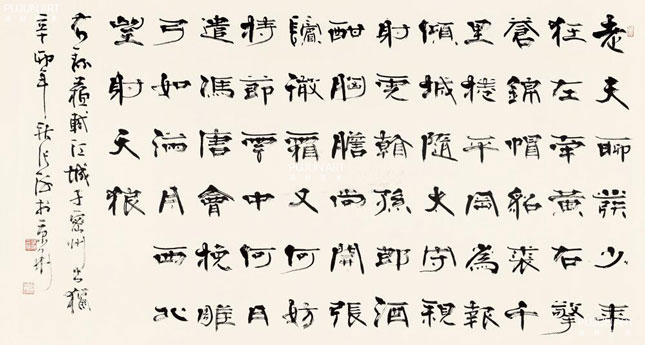 老夫聊發少年
狂左牽黃右擎
蒼錦帽貂裘千
里捲平岡為報
傾城隨太守親
射虎看孫郎酒
酣胸膽尚開張
鬢微霜又何妨
持節雲中何日
遣馮唐會挽雕
弓如滿月西北
望射天狼
右錄蘇軾江城子密州出獵
辛卯年秋
PUJUN ART